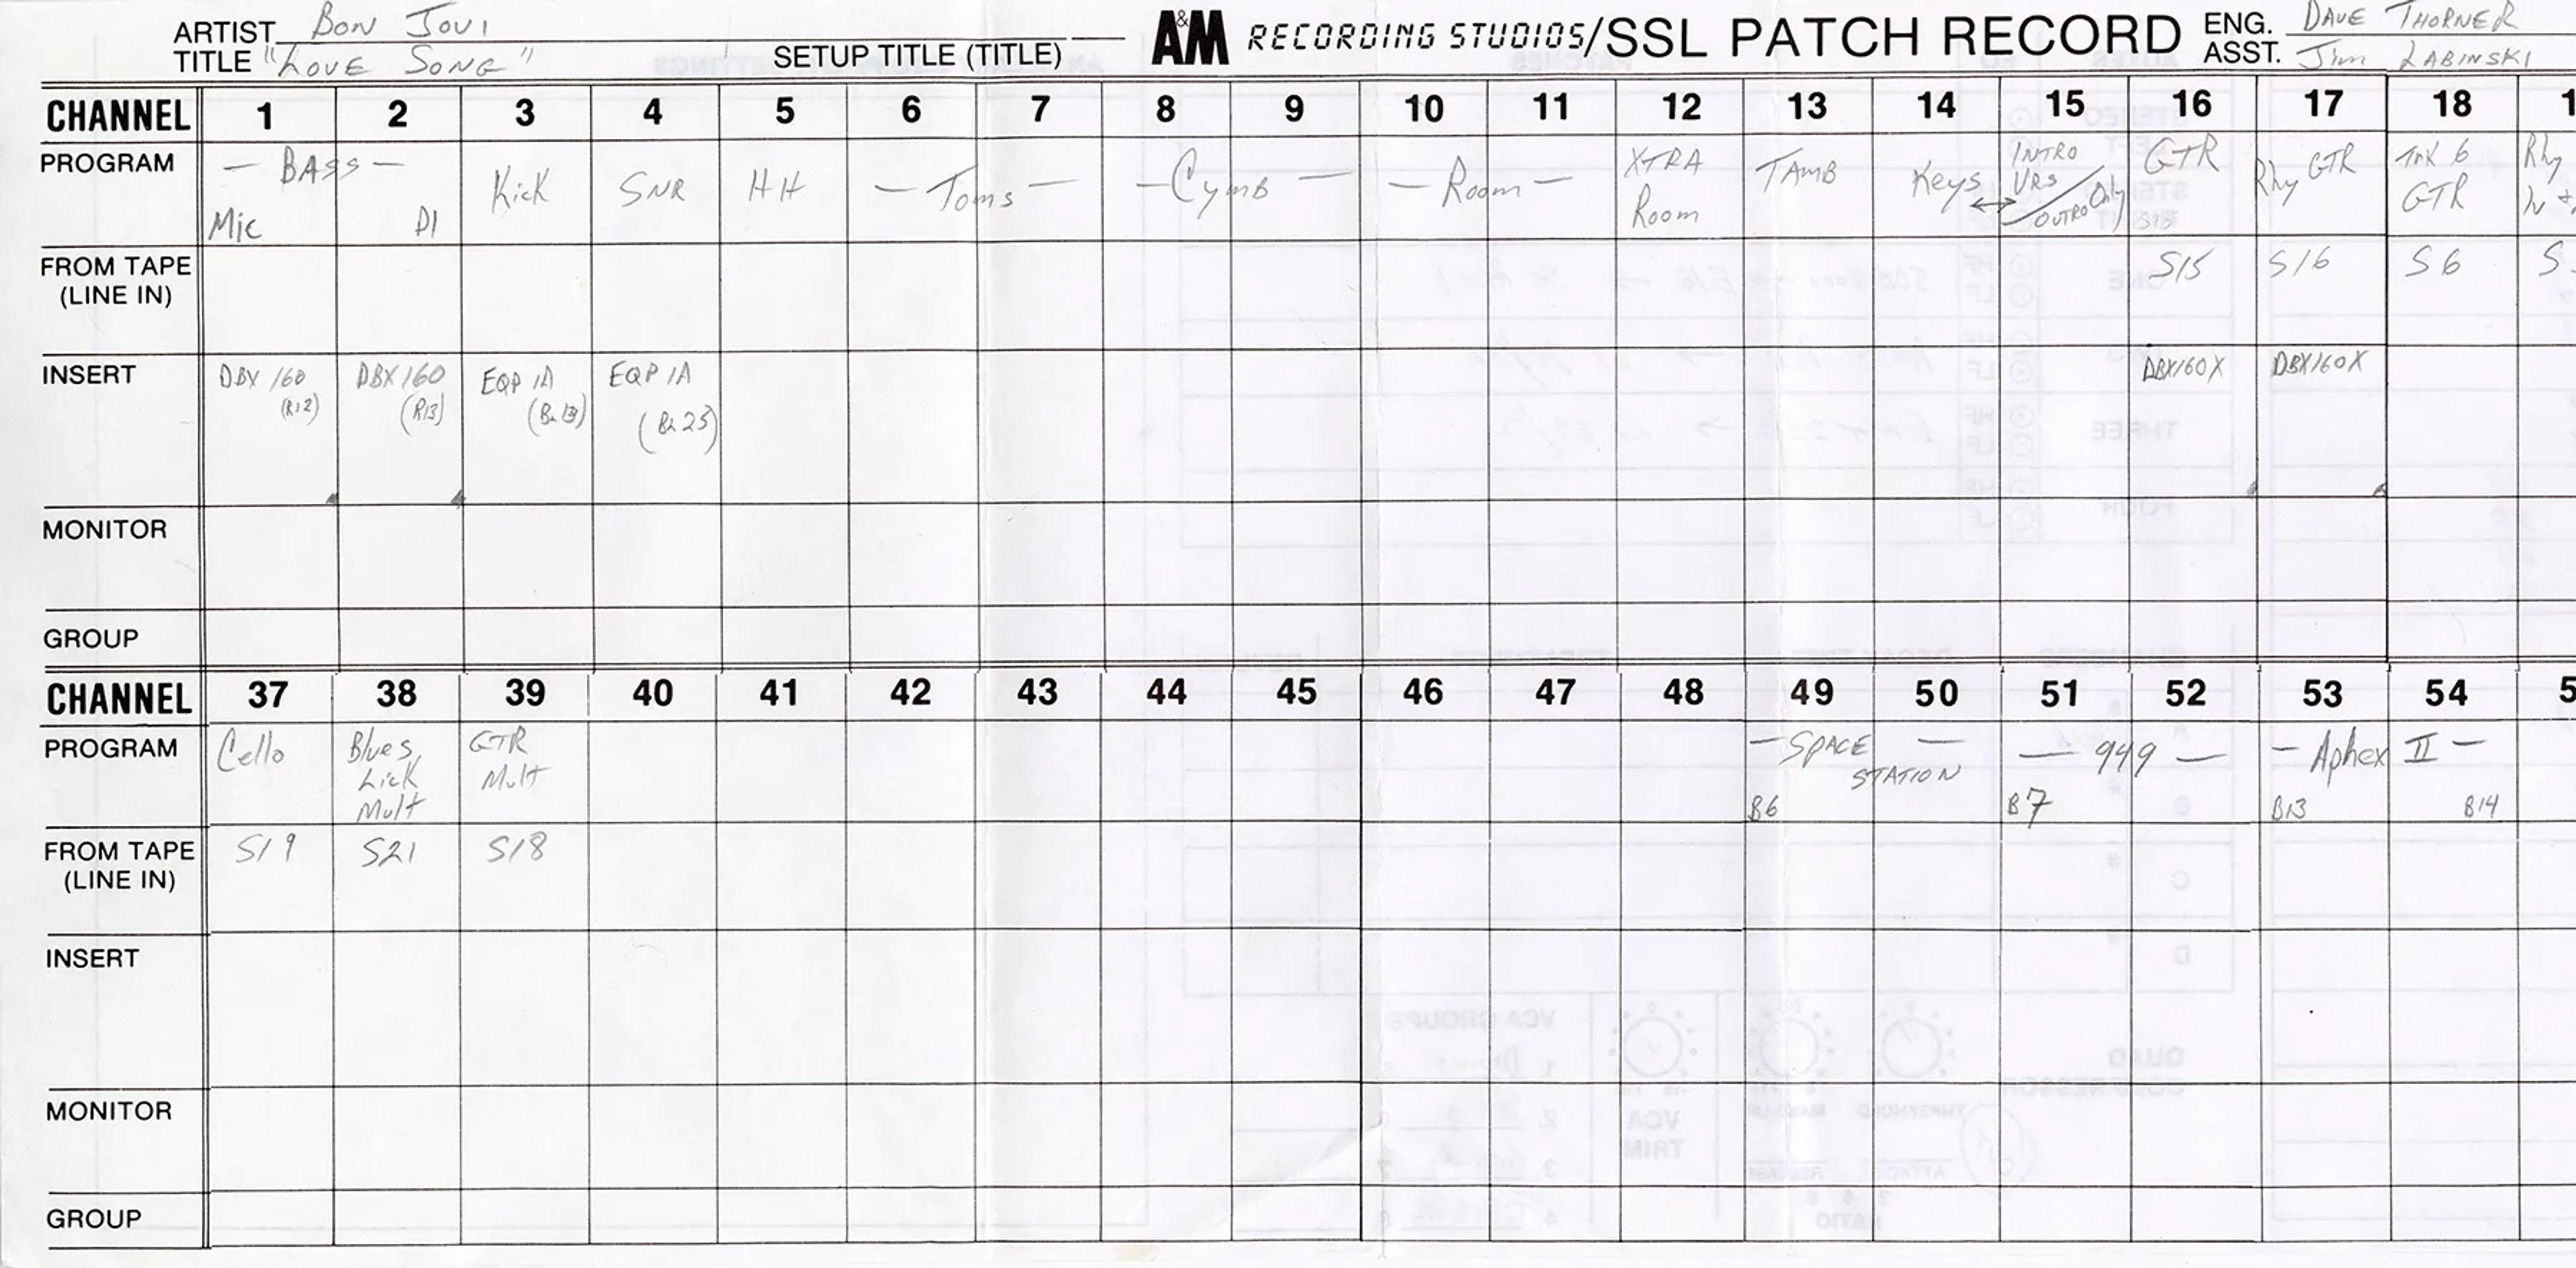 ARTIST Bon Jovi
TITLE "Love Song" SETUP TITLE (TITLE)
A&M RECORDING STUDIOS/SSL PATCH RECORD
ENG. DAVE THORNER
ASST. Jim LABINSKI
CHANNEL 1 2 3 4 5 6 7 8 9 10 11 12 13 14 15 16 17 18 1
PROGRAM — BASS — Mic DI Kick SNR HH — Toms — — Cymb — — Room — XTRA Room TAMB Keys ↔ INTRO VRS / OUTRO Only GTR Rhy GTR Trk 6 GTR Rhy
FROM TAPE (LINE IN) S15 S16 S6 S
INSERT DBX 160 (R12) DBX 160 (R13) EQP 1A EQP 1A DBX160X DBX160X
MONITOR
GROUP
CHANNEL 37 38 39 40 41 42 43 44 45 46 47 48 49 50 51 52 53 54 5
PROGRAM Cello Blues Lick Mult GTR Mult — SPACE STATION — B6 — 949 — B7 — Aphex II — B13 B14
FROM TAPE (LINE IN) S19 S21 S18
INSERT
MONITOR
GROUP